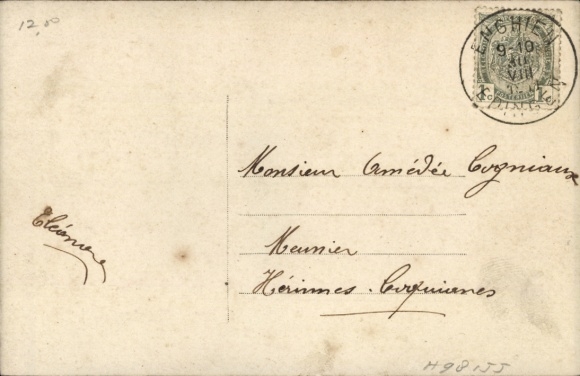 12,00
ENGHIEN
9-10
XII
VIII
EDINGEN
Monsieur Amédée Cogniaux
Eléonore
Meunier
Hérinnes
H98155